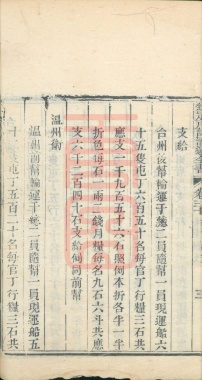 支給
台州後幫輪運千總二員隨幫一員現運船六
十五隻屯丁六百五十名每官丁行糧三石共
應支一千九百五十六石應何本折各半一半
折色每石一兩二錢月糧每名九石六斗共應
支六千二百四十石支給何同前幫
溫州衛
溫州前幫輪運千總二員隨幫一員現運船五
十二隻屯丁五百二十名每官丁行糧三石共